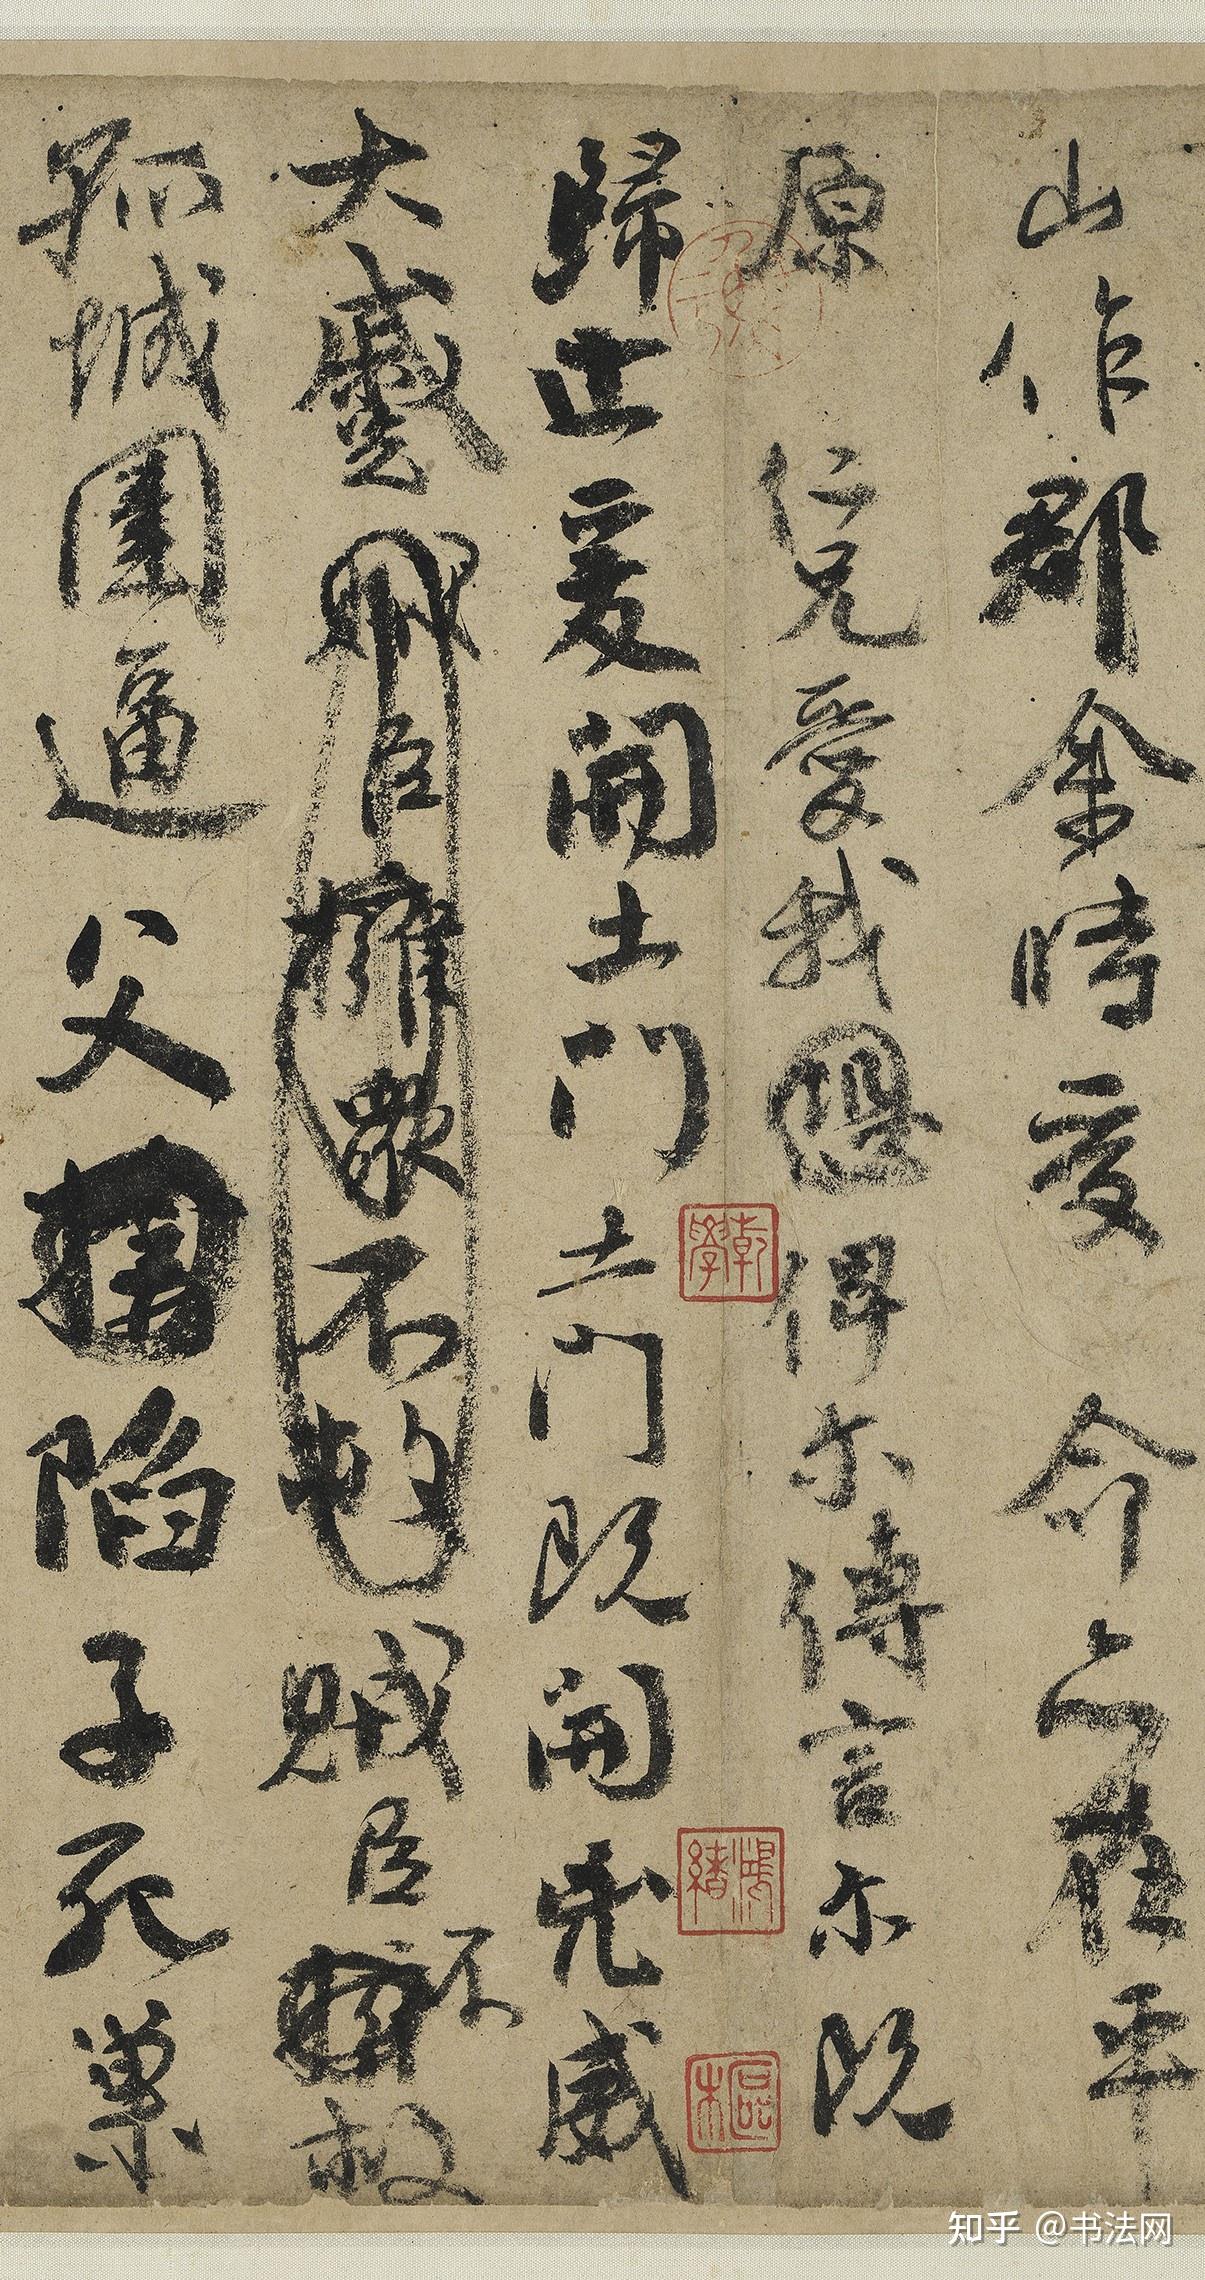 山作郡余時受命亦在平
原仁兄愛我恐俾尔傳言尔既
歸止爰開土門土門既開兇威
大蹙賊臣擁衆不救賊臣不救
孤城圍逼父陷子死巢
乾學
鴻緒
知乎 @书法网